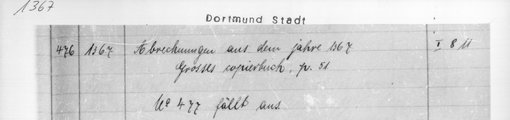 1367
Dortmund Stadt
476 1367 Abrechnungen aus dem jahre 1367 I 8 11
Grosses copierbuch. p. 51
No 477 fällt aus